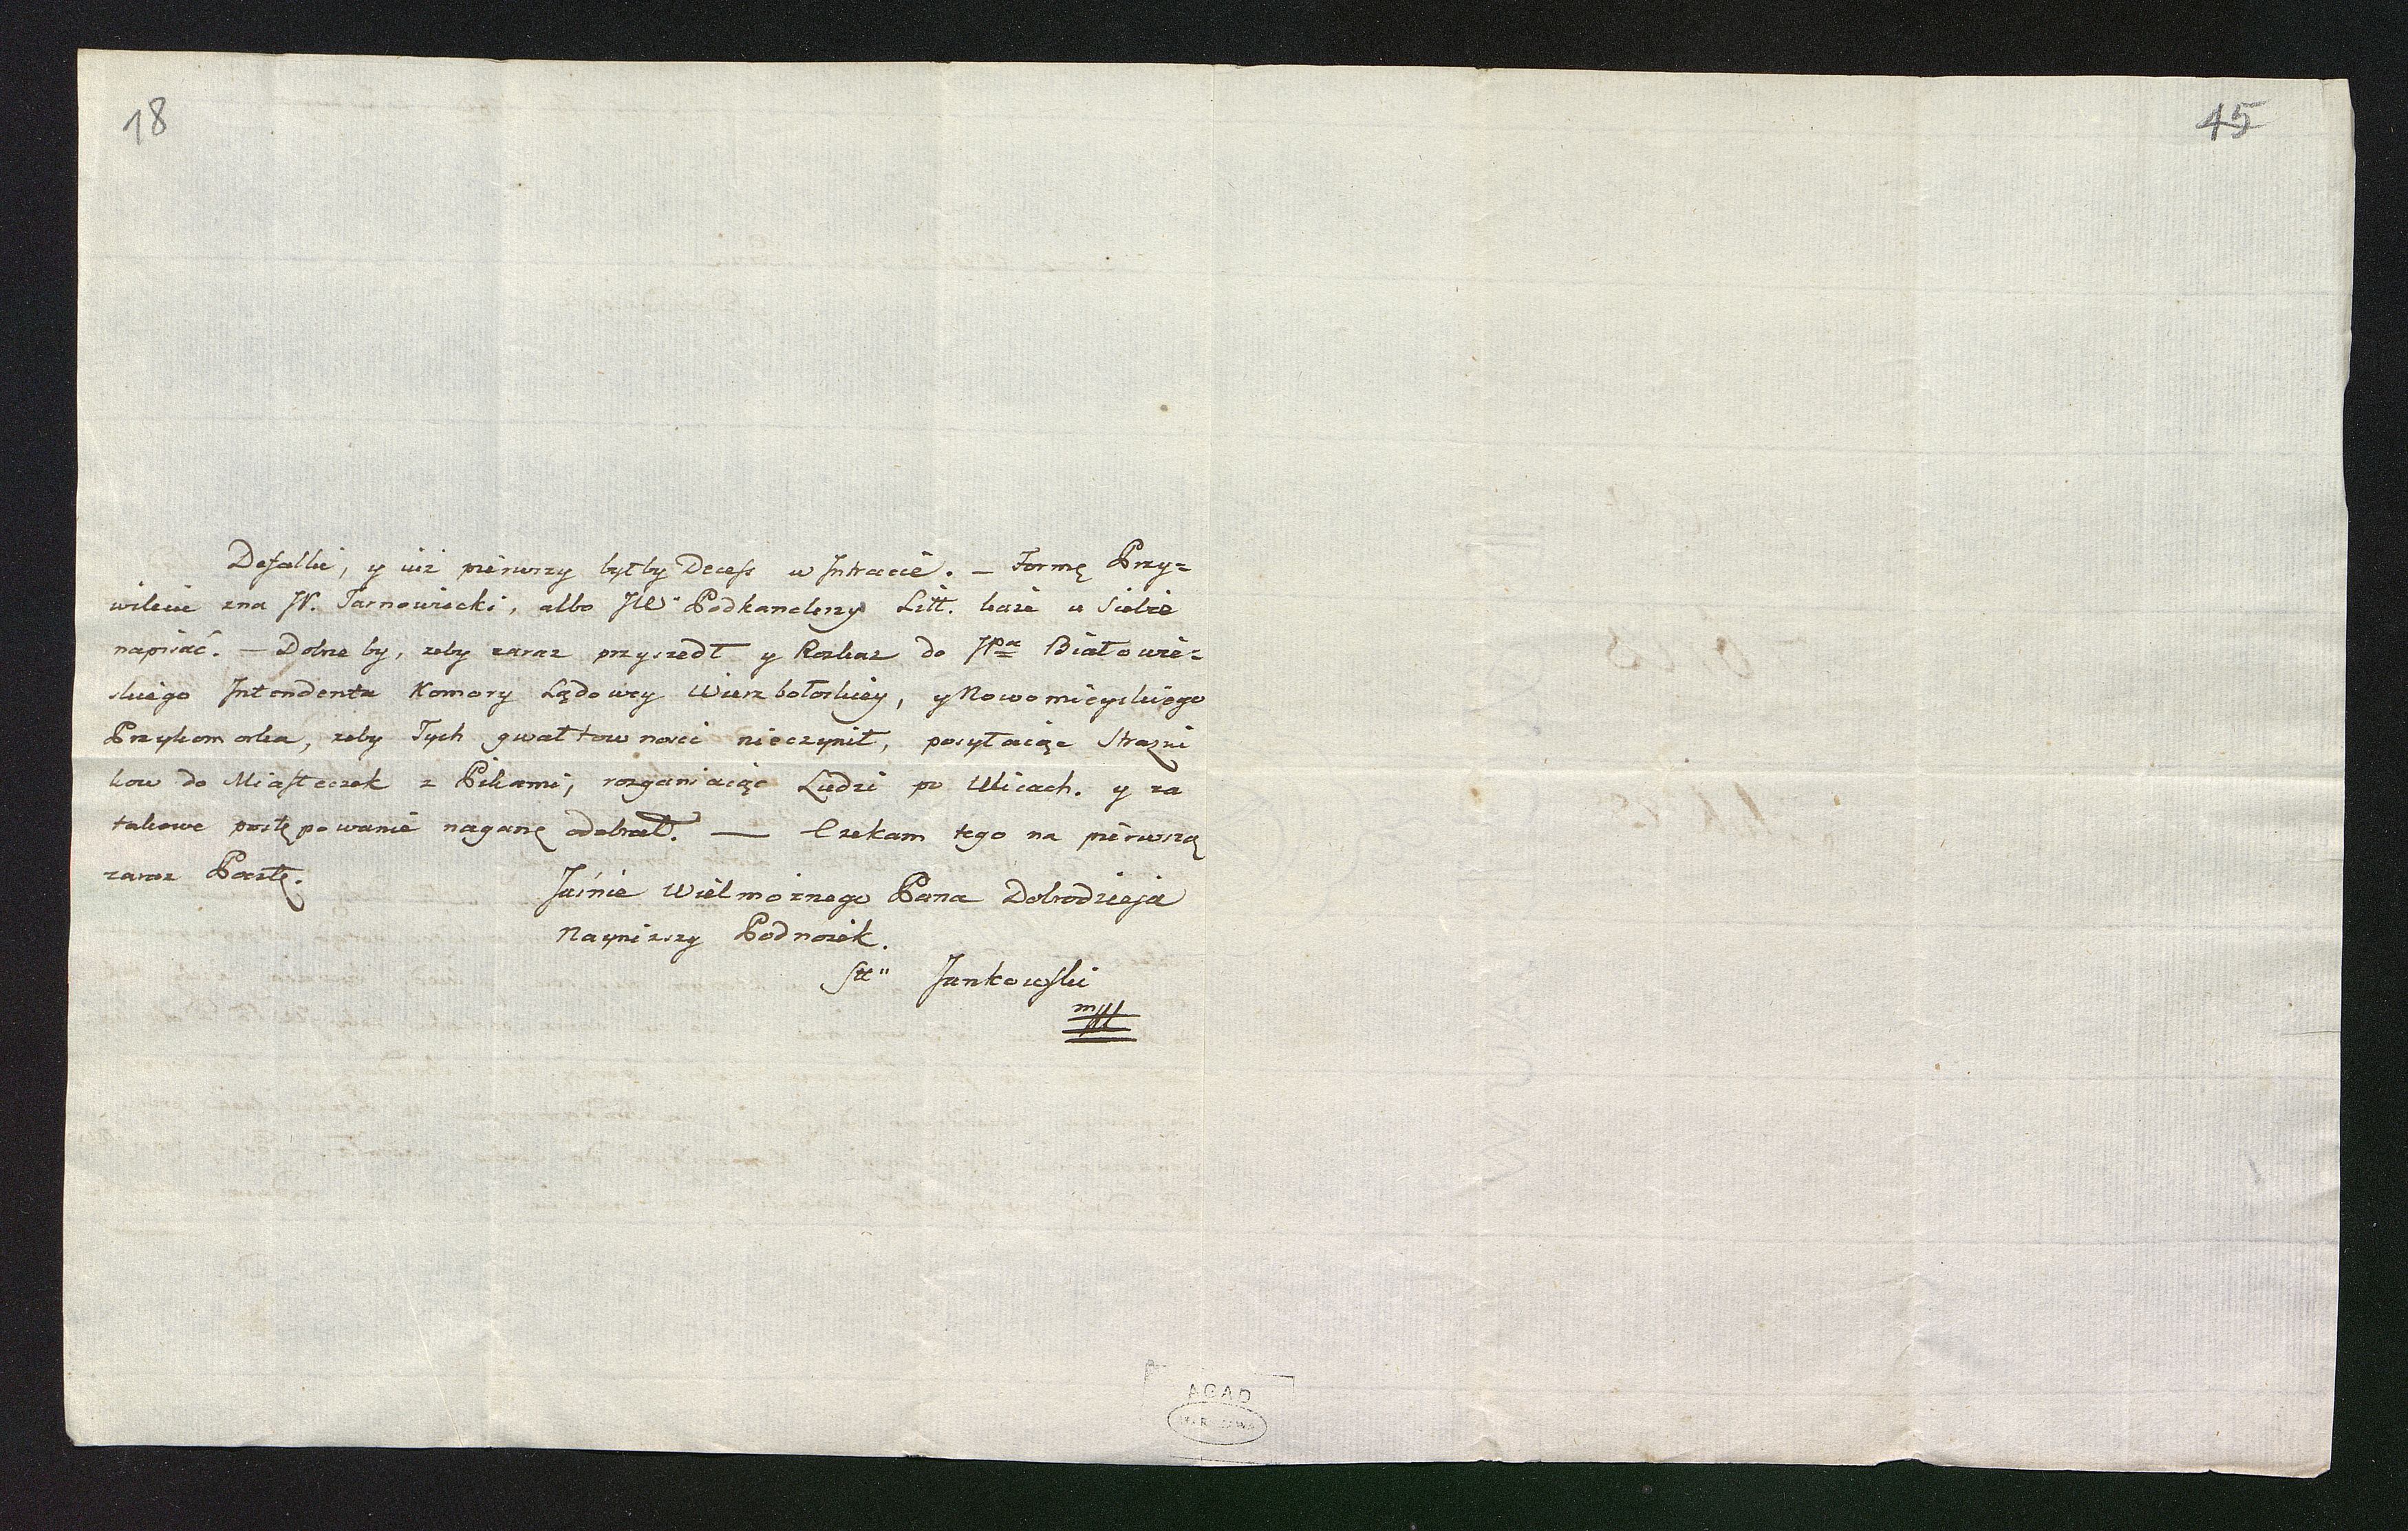 18
45
Defalki, y iuż pierwszy byłby Decess w Intracie. – Formę Przy=
wileiu zna JW. Tarnowiecki, albo JW. Podkanclerzy Litt. każe u siebie
napisać. – Dobrze by, zeby zaraz przyszedł y Rozkaz do JPa Białowie=
skiego Intendenta Komory Lądowey Wierzbołoskiey, y Nowomieyskiego
Przykomorka, zeby Tych gwałtownosci nieczynił, posyłaiąc Strazni
kow do Miasteczek z Pikami, rozganiaiąc Ludzi po Ulicach. y za
takowe postępowanie naganę odebrał. — Czekam tego na pierwszą
zaraz Pocztę.
Jaśnie Wielmożnego Pana Dobrodzieja
Nayniższy Podnożek.
Jankowski
mp
AGAD
WARSZAWA